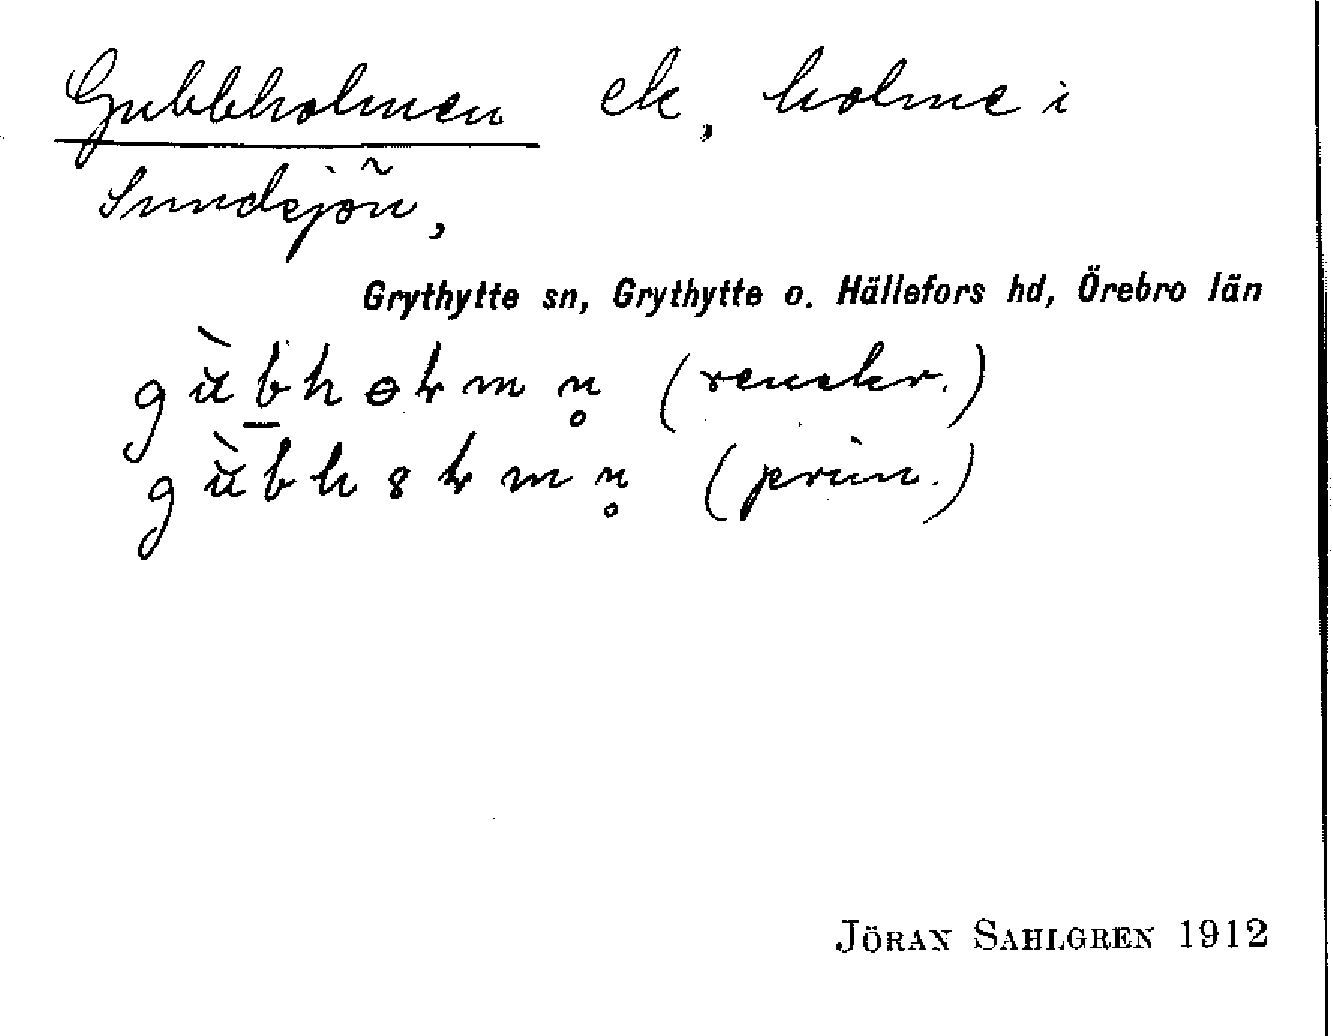 Gubbholmen ek, holme i
Sundsjön,
Grythytte sn, Grythytte o. Hällefors hd, Örebro län
(renskr.)
(prim.)
JÖRAN SAHLGREN 1912